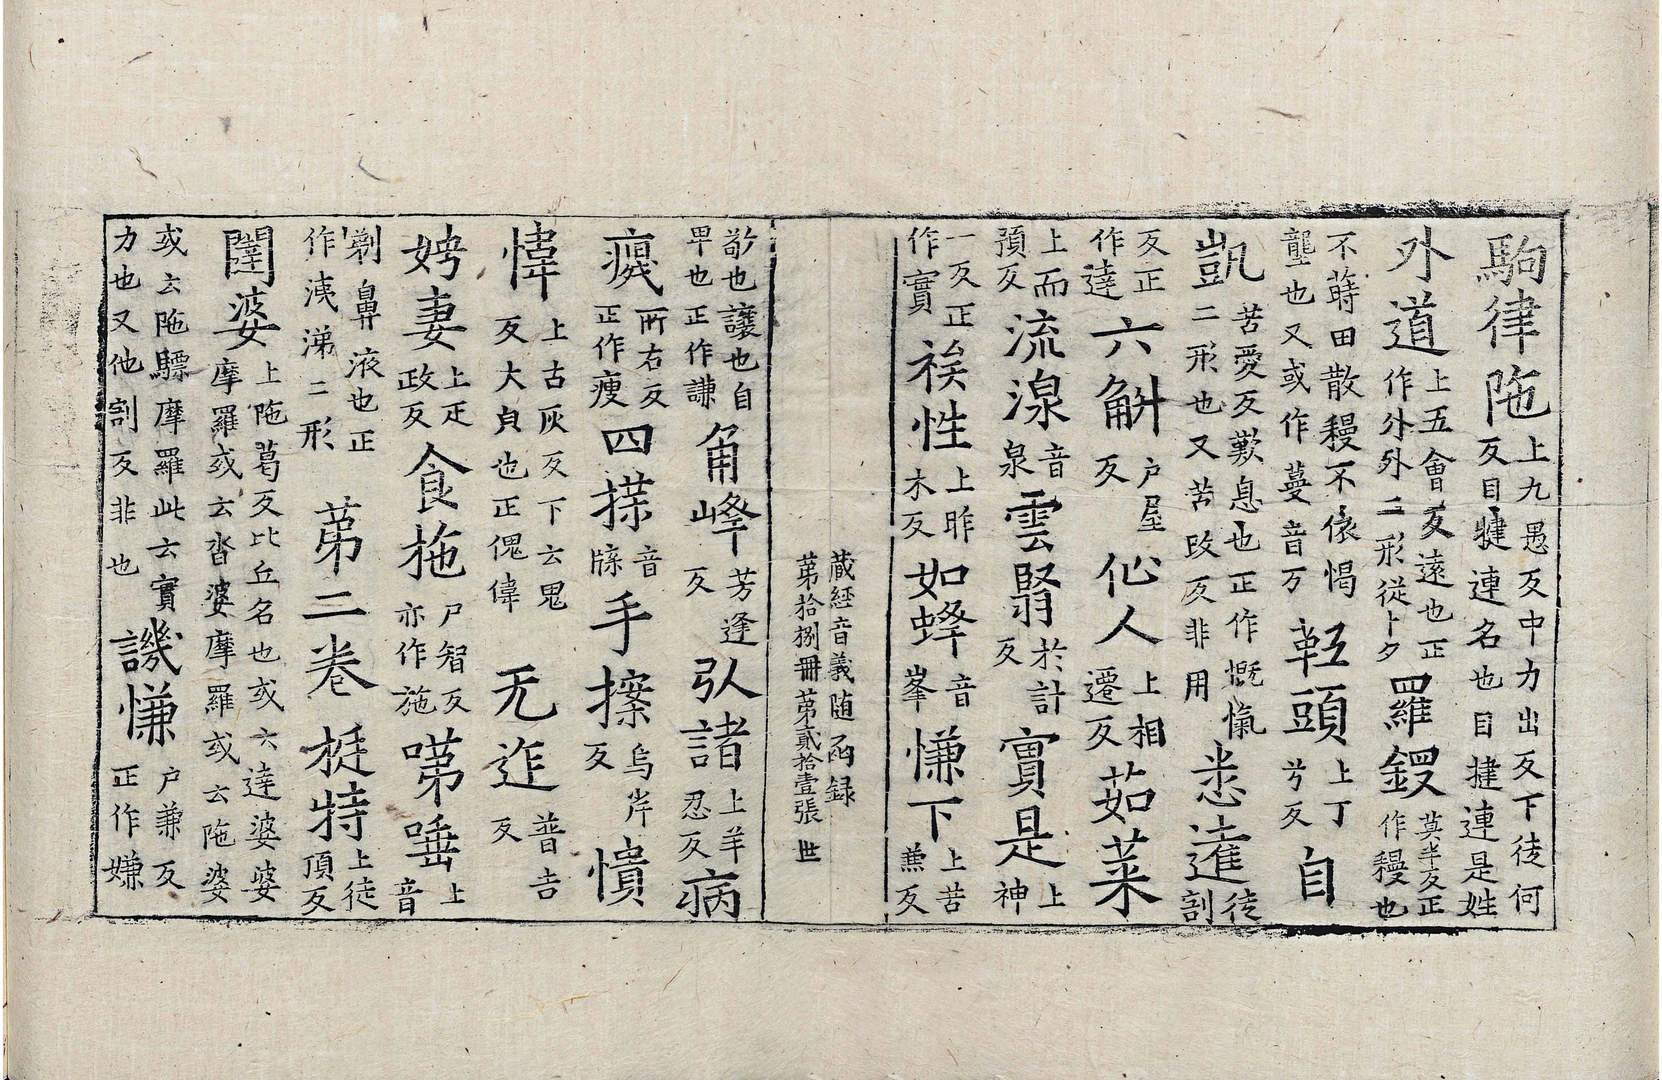 駒律陁
上九愚反中力出反下徒何
反目犍連名也目揵連是姓
外道
上五會反遠也正
作外外二形從卜夕
羅鍐
莫半反正
作䅼也
不蒔田散䅼不依愒
壟也又或作蔓音万
頭
上丁
兮反
自
凱
苦愛反歎息也正作慨愾
二形也又苦改反非用
悉達
徒
割
反正
作達
六斛
户屋
反
仙人
上相
遷反
茹菜
上而
預反
流湶
音
泉
雲翳
於計
反
實是
上
神
一反正
作實
性
上昨
木反
如蜂
音
峯
慊下
上苦
蕉反
藏經音義随函録
苐拾捌冊苐貳拾壹張 世
欿也讓也自
卑也正作謙
角峰
芳逢
反
弘諸
上羊
忍反
病
所右反
正作瘦
四㩸
音
牒
手捺
烏岸
反
憒
愇
上古灰反下云鬼
反大皃也正傀偉
无迮
普吉
反
娉妻
上疋
政反
食拖
尸智反
亦作施
唾
上
音
剃鼻液也正
作洟涕二形
苐二卷
梃特
上徒
頂反
闥婆
上陁葛反比丘名也或云達婆婆
摩羅或云沓婆摩羅或云陁婆
或云陁驃摩羅此云實
力也又他割反非也
譏慊
户兼反
正作嫌